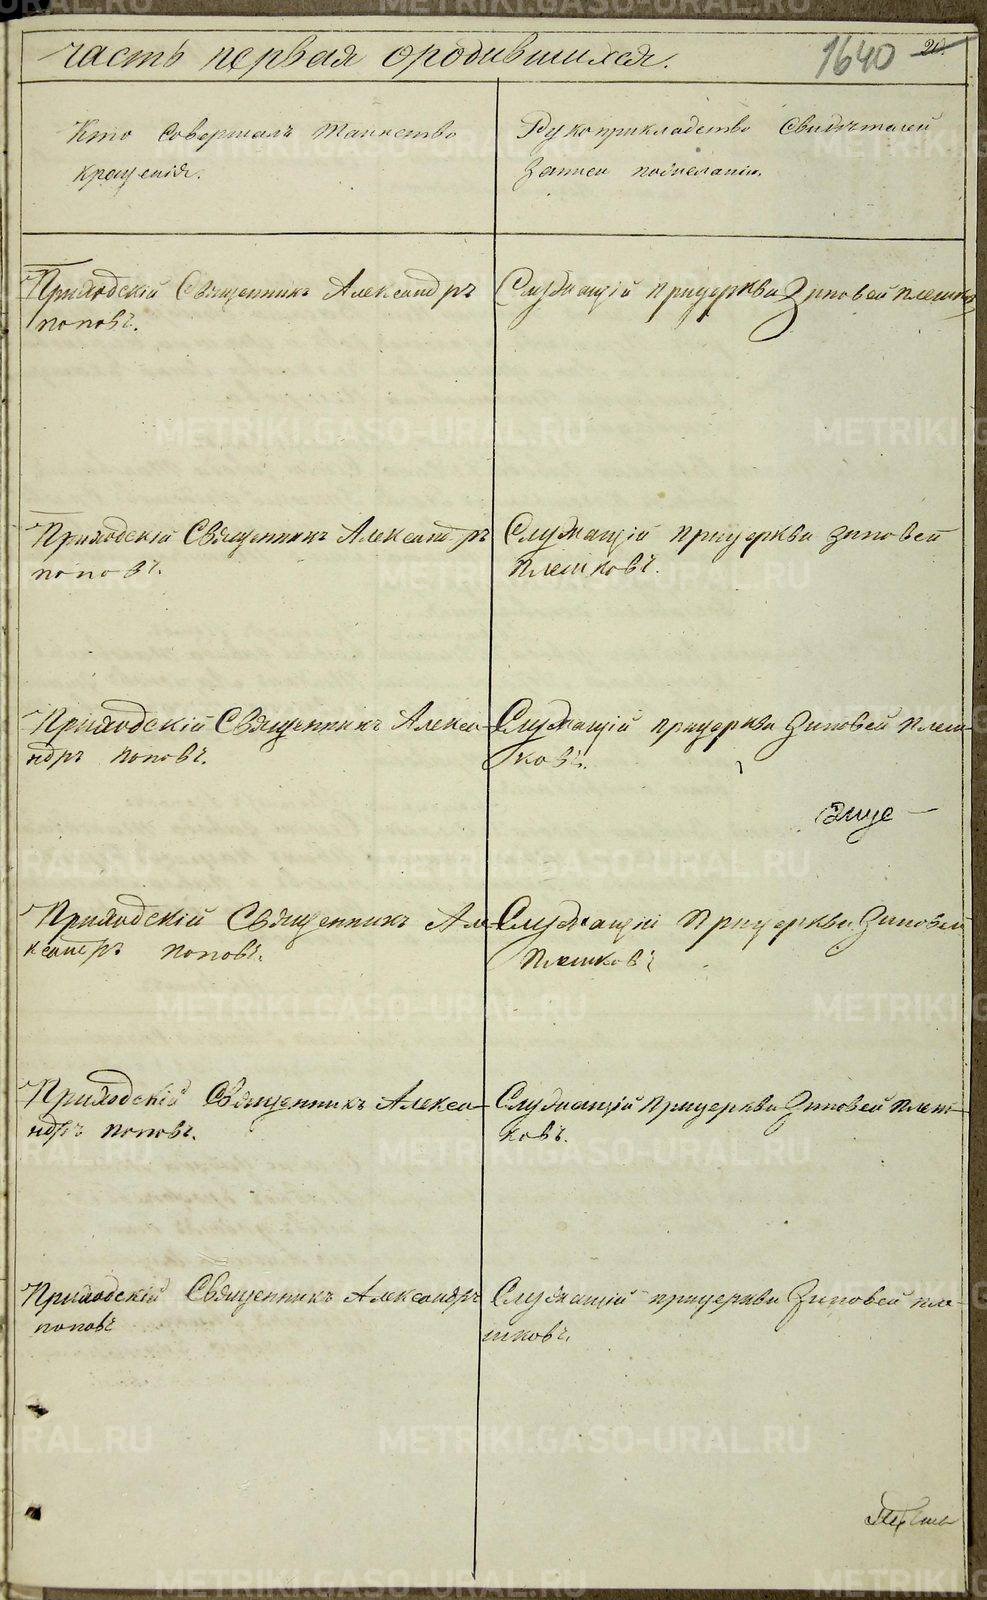 часть первая о родившихся.
1640
Кто Совершалъ Таинство
крещенія.
Рукоприкладство Свидѣтелей
Записи пожеланію.
Приходскій Священникъ Александръ
поповъ.
Служащій прицеркви Зиновей плешков
Приходскій Священникъ Александръ
поповъ.
Служащій прицеркви зиновей
плешковъ.
Приходскій Священникъ Алекса-
ндръ поповъ.
Служащій прицеркви Зиновей плеш-
ковъ.
Приходскій Священникъ Але-
ксандръ поповъ.
Служащій прицеркви Зиновей
плешковъ
Приходскій Священникъ Алекса-
ндръ поповъ.
Служащій прицеркви Зиновей плеш-
ковъ.
Приходскій Священникъ Александръ
поповъ
Служащій прицеркви Зиновей пле-
шковъ.
METRIKI.GASO-URAL.RU